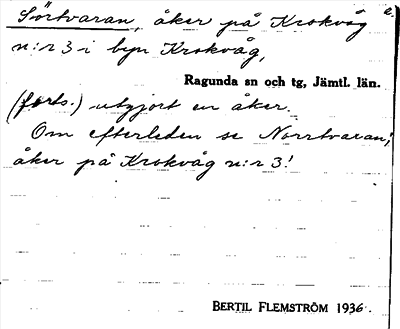 Sörtvaran, åker på Krokvåg
n:r 3 i byn Krokvåg,
Ragunda sn och tg, Jämtl. län.
(forts.) utgjort en åker.
Om efterleden se Norrtvaran,
åker på Krokvåg n:r 3!
BERTIL FLEMSTRÖM 1936.